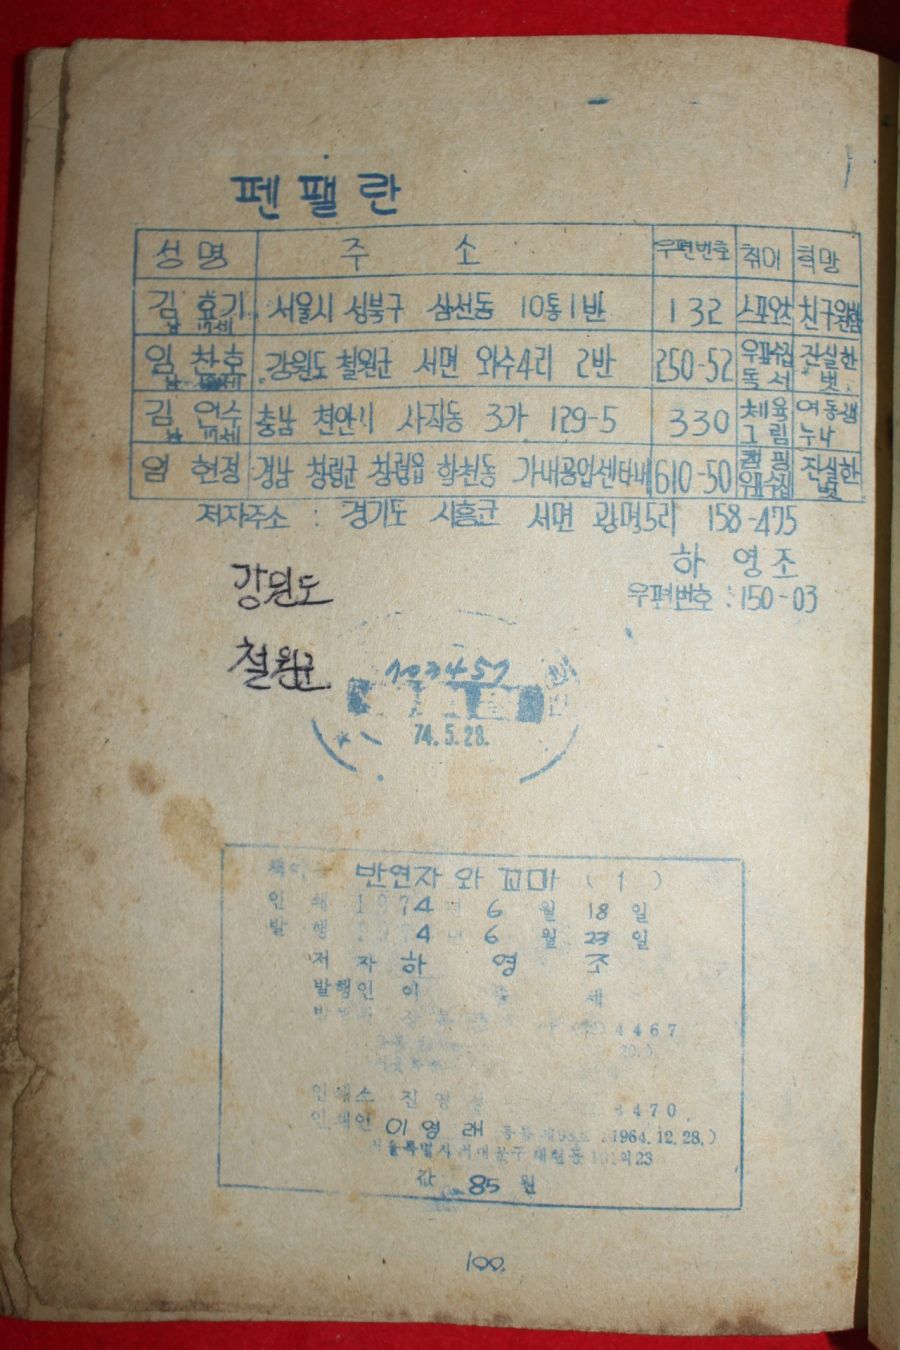 펜팰란
성명 주소 우편번호 취미 희망
김 효기 남 17세 서울시 성북구 삼선동 10통 1반 132 스포오츠 친구
임 찬호 남 강원도 철원군 서면 와수4리 2반 250-52 우표수집 독서 진실한 벗
김 언수 남 17세 충남 천안시 사직동 3가 129-5 330 체육 그림 여동생 누나
엄 현정 경남 창령군 창령읍 가내공업센타내 610-50 캠핑 우표수집 진실한 벗
저자주소 : 경기도 시흥군 서면 광명5리 158-475
하 영조
우편번호 : 150-03
강원도
철원군
74.5.28.
반연자와 꼬마 (1)
인쇄 1974년 6월 18일
발행 1974년 6월 23일
저자 하영조
발행인 이 세
4467
인쇄소 진영
3470
인쇄인 이영래 1964.12.28.)
서울특별시 서대문구
값 85원
100.